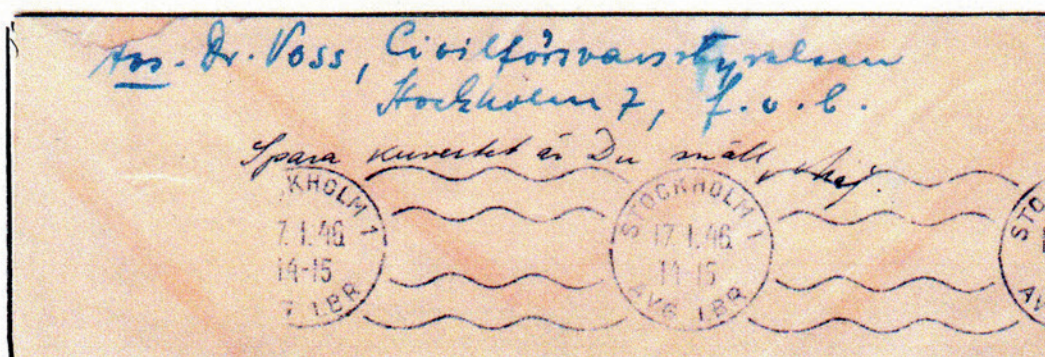 Avs. Dr. Voss, Civilförsvarsstyrelsen
Stockholm 7, f.v.b.
Spara kuvertet är Du snäll, hej.
KHOLM 1
7.1.46
14-15
AVG LBR
STOCKHOLM 1
17.1.46
14-15
AVG LBR
STO
AV